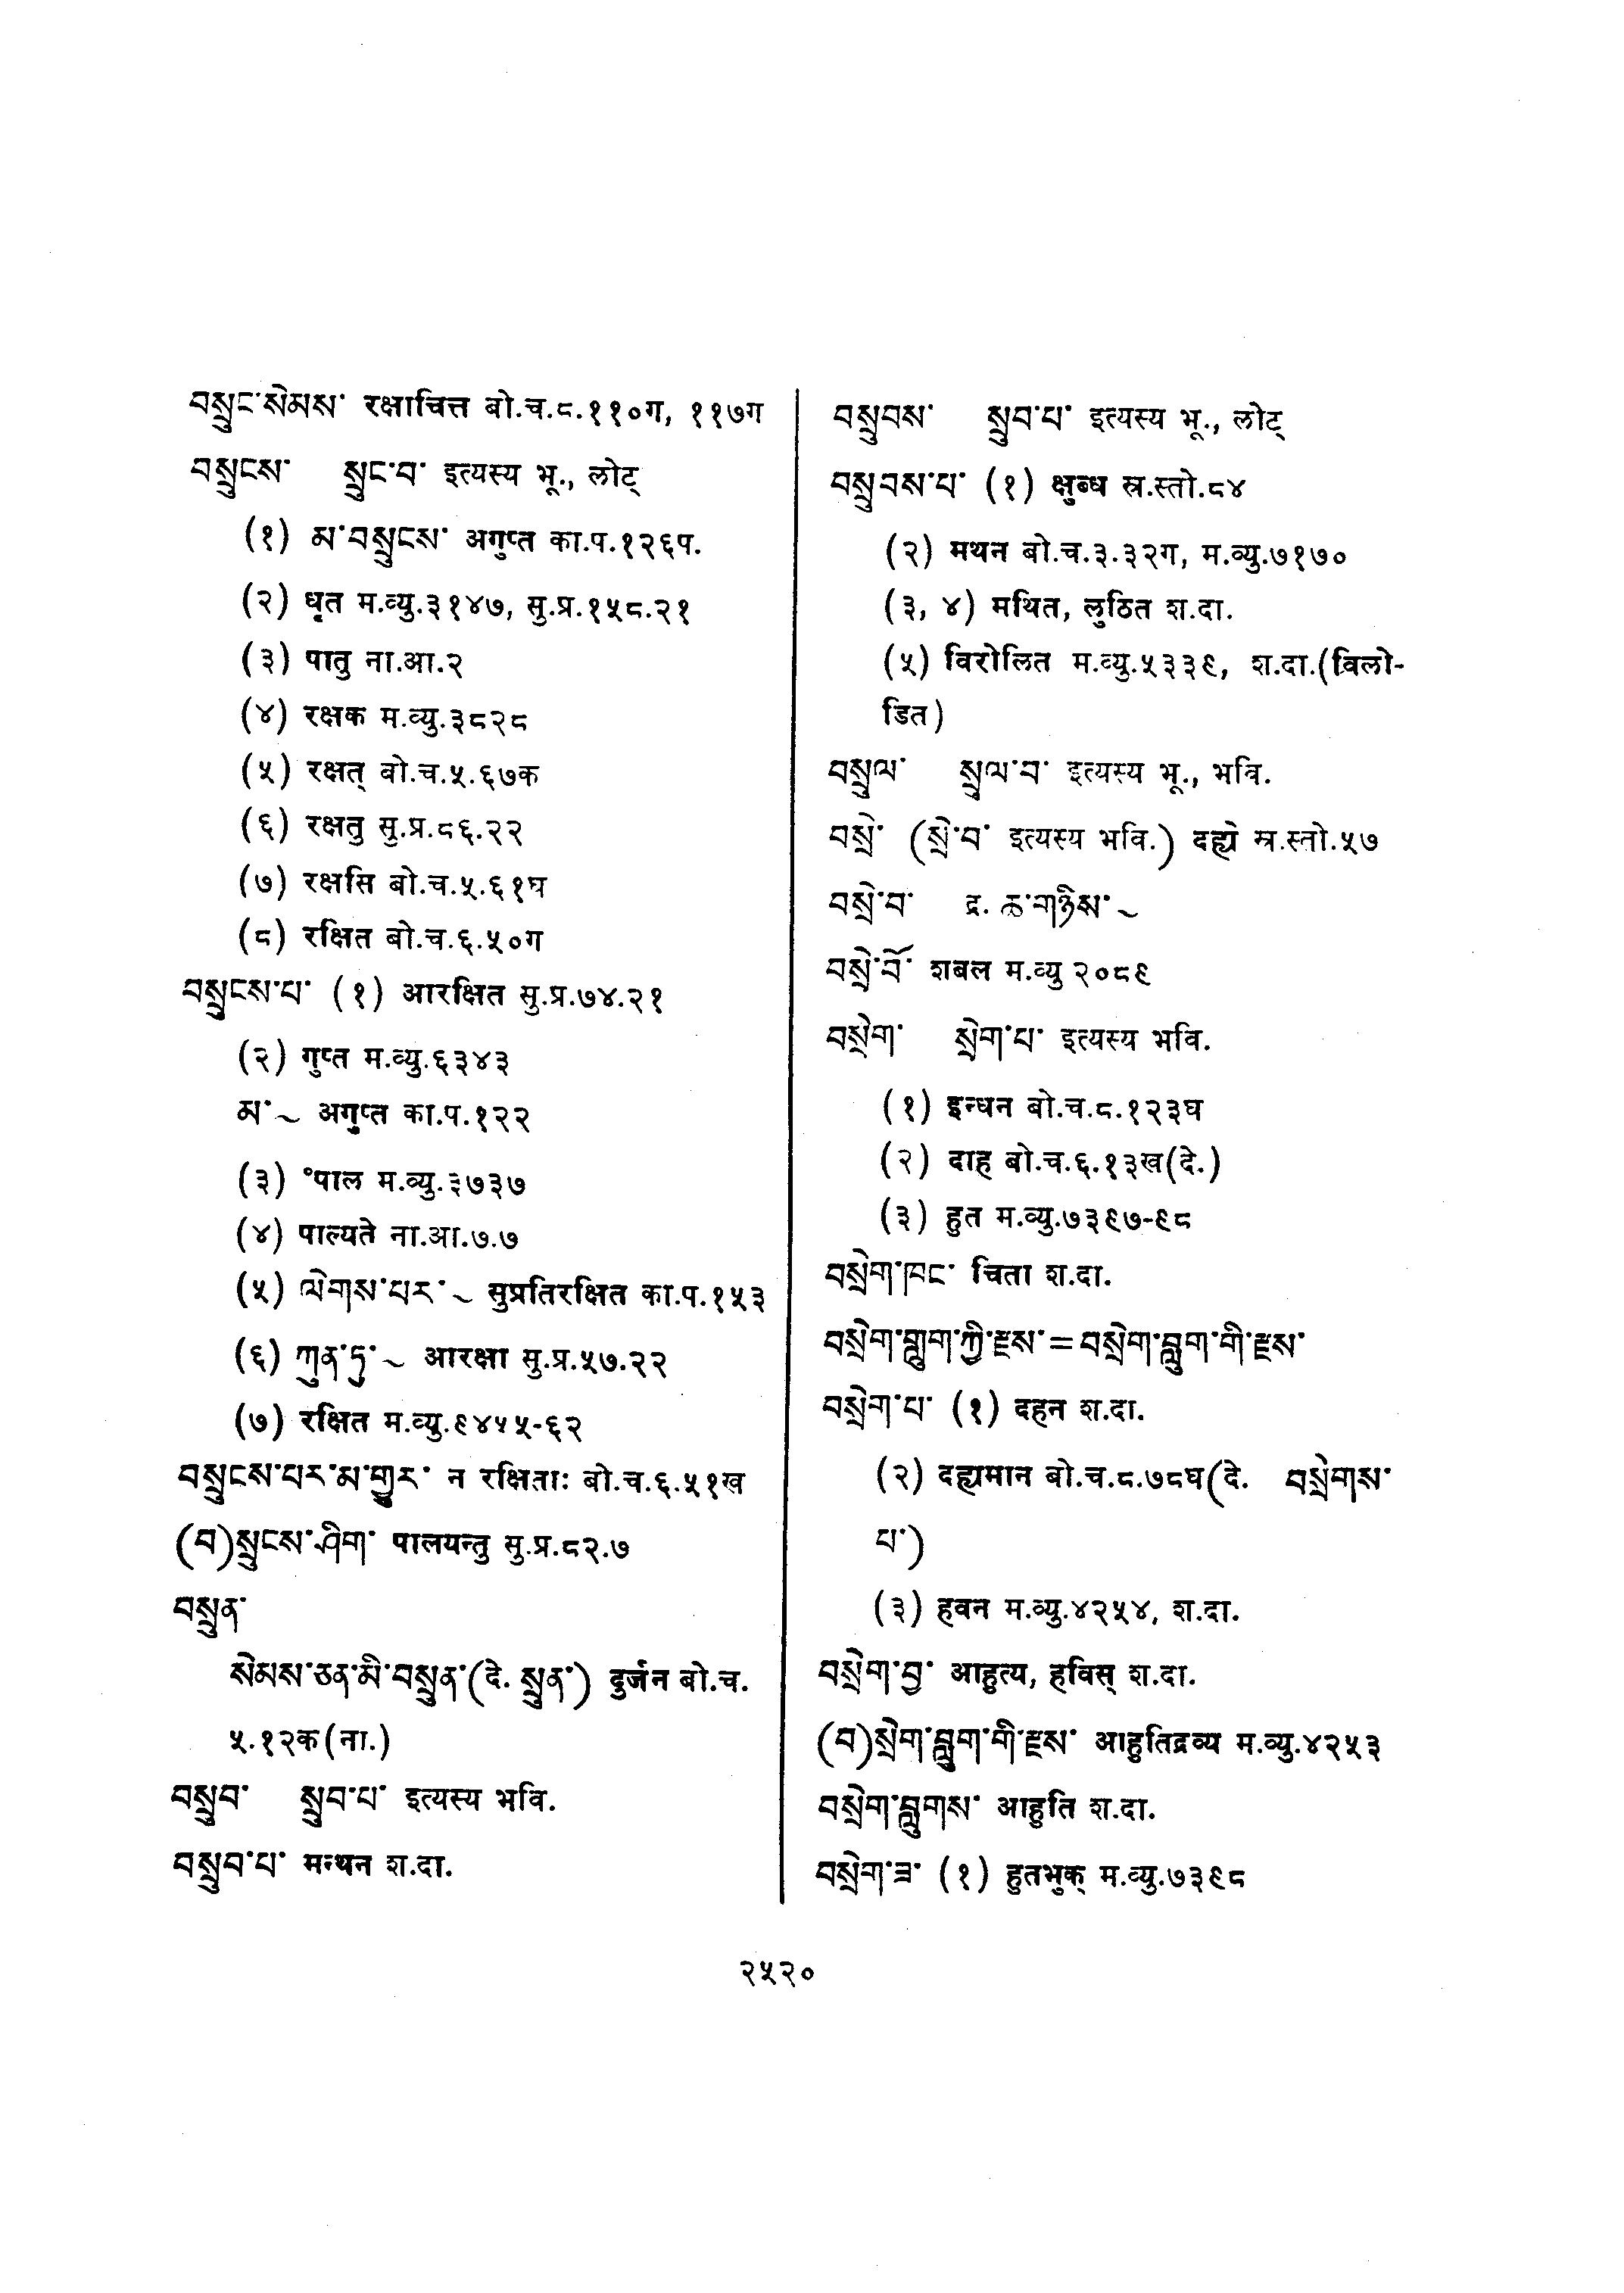 བསྲུང་སེམས་ रक्षाचित्त बो.च.८.११०ग, ११७ग
བསྲུངས་ སྲུང་བ་ इत्यस्य भू., लोट्
(१) མ་བསྲུངས་ अगुप्त का.प.१२६प.
(२) धृत म.व्यु.३१४७, सु.प्र.१५८.२१
(३) पातु ना.आ.२
(४) रक्षक म.व्यु.३८२८
(५) रक्षत् बो.च.५.६७क
(६) रक्षतु सु.प्र.८६.२२
(७) रक्षसि बो.च.५.६१घ
(८) रक्षित बो.च.६.५०ग
བསྲུངས་པ་ (१) आरक्षित सु.प्र.७४.२१
(२) गुप्त म.व्यु.६३४३
མ་~ अगुप्त का.प.१२२
(३) °पाल म.व्यु.३७३७
(४) पाल्यते ना.आ.७.७
(५) ལེགས་པར་~ सुप्रतिरक्षित का.प.१५३
(६) ཀུན་ཏུ་~ आरक्षा सु.प्र.५७.२२
(७) रक्षित म.व्यु.९४५५-६२
བསྲུངས་པར་མ་གྱུར་ न रक्षिताः बो.च.६.५१ख
(བ)སྲུངས་ཤིག་ पालयन्तु सु.प्र.८२.७
བསྲུན་
སེམས་ཅན་མི་བསྲུན་(दे. སྲུན་) दुर्जन बो.च.
५.१२क(ना.)
བསྲུབ་ སྲུབ་པ་ इत्यस्य भवि.
བསྲུབ་པ་ मन्थन श.दा.
བསྲུབས་ སྲུབ་པ་ इत्यस्य भू., लोट्
བསྲུབས་པ་ (१) क्षुब्ध स्र.स्तो.८४
(२) मथन बो.च.३.३२ग, म.व्यु.७१७०
(३, ४) मथित, लुठित श.दा.
(५) विरोलित म.व्यु.५३३९, श.दा.(विलो-
डित)
བསྲུལ་ སྲུལ་བ་ इत्यस्य भू., भवि.
བསྲེ་ (སྲེ་བ་ इत्यस्य भवि.) दह्ये स्र.स्तो.५७
བསྲེ་བ་ द्र. ཆ་གཉིས་~
བསྲེ་བོ་ शबल म.व्यु २०८९
བསྲེག་ སྲེག་པ་ इत्यस्य भवि.
(१) इन्धन बो.च.८.१२३घ
(२) दाह बो.च.६.१३ख(दे.)
(३) हुत म.व्यु.७३९७-९८
བསྲེག་ཁང་ चिता श.दा.
བསྲེག་གླུག་ཀྱི་རྫས་=བསྲེག་བླུག་གི་རྫས་
བསྲེག་པ་ (१) दहन श.दा.
(२) दह्यमान बो.च.८.७८घ(दे. བསྲེགས་
པ་)
(३) हवन म.व्यु.४२५४, श.दा.
བསྲེག་བྱ་ आहुत्य, हविस् श.दा.
(བ)སྲེག་བླུག་གི་རྫས་ आहुतिद्रव्य म.व्यु.४२५३
བསྲེག་བླུགས་ आहुति श.दा.
བསྲེག་ཟ་ (१) हुतभुक् म.व्यु.७३९८
२५२०